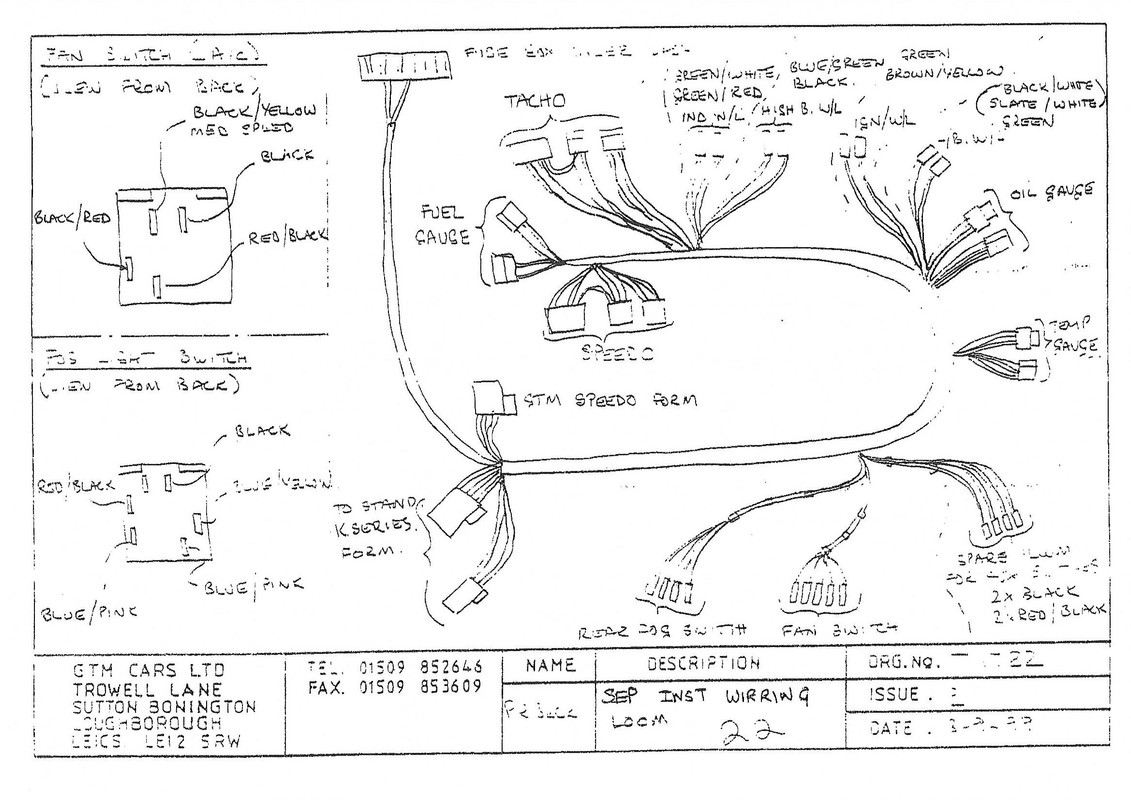 FAN SWITCH
FROM BACK)
BLACK/YELLOW
MED SPEED
BLACK
BLACK/RED
RED/BLACK
LIGHT SWITCH
FROM BACK)
BLACK
RED/BLACK
BLUE/YELLOW
BLUE/PINK
BLUE/PINK
FUSE BOX
TACHO
GREEN/WHITE,
GREEN/RED,
IND W/L
BLUE/GREEN
BLACK.
HIGH B. W/L
GREEN
BROWN/YELLOW
IGN/WL
(BLACK/WHITE)
SLATE/WHITE
GREEN
OIL GAUGE
FUEL
GAUGE
SPEEDO
TEMP
GAUGE
GTM SPEEDO FORM
TO STAND.
K SERIES.
FORM.
REAR FOG SWITCH
FAN SWITCH
SPARE
FOR
2x BLACK
2xRED/BLACK
GTM CARS LTD
TROWELL LANE
SUTTON BONINGTON
LOUGHBOROUGH
LEICS LE12 5RW
TEL. 01509 852646
FAX. 01509 853609
NAME
DESCRIPTION
SEP INST WIRRING
LOOM
22
DRG.NO.
22
ISSUE.
DATE.